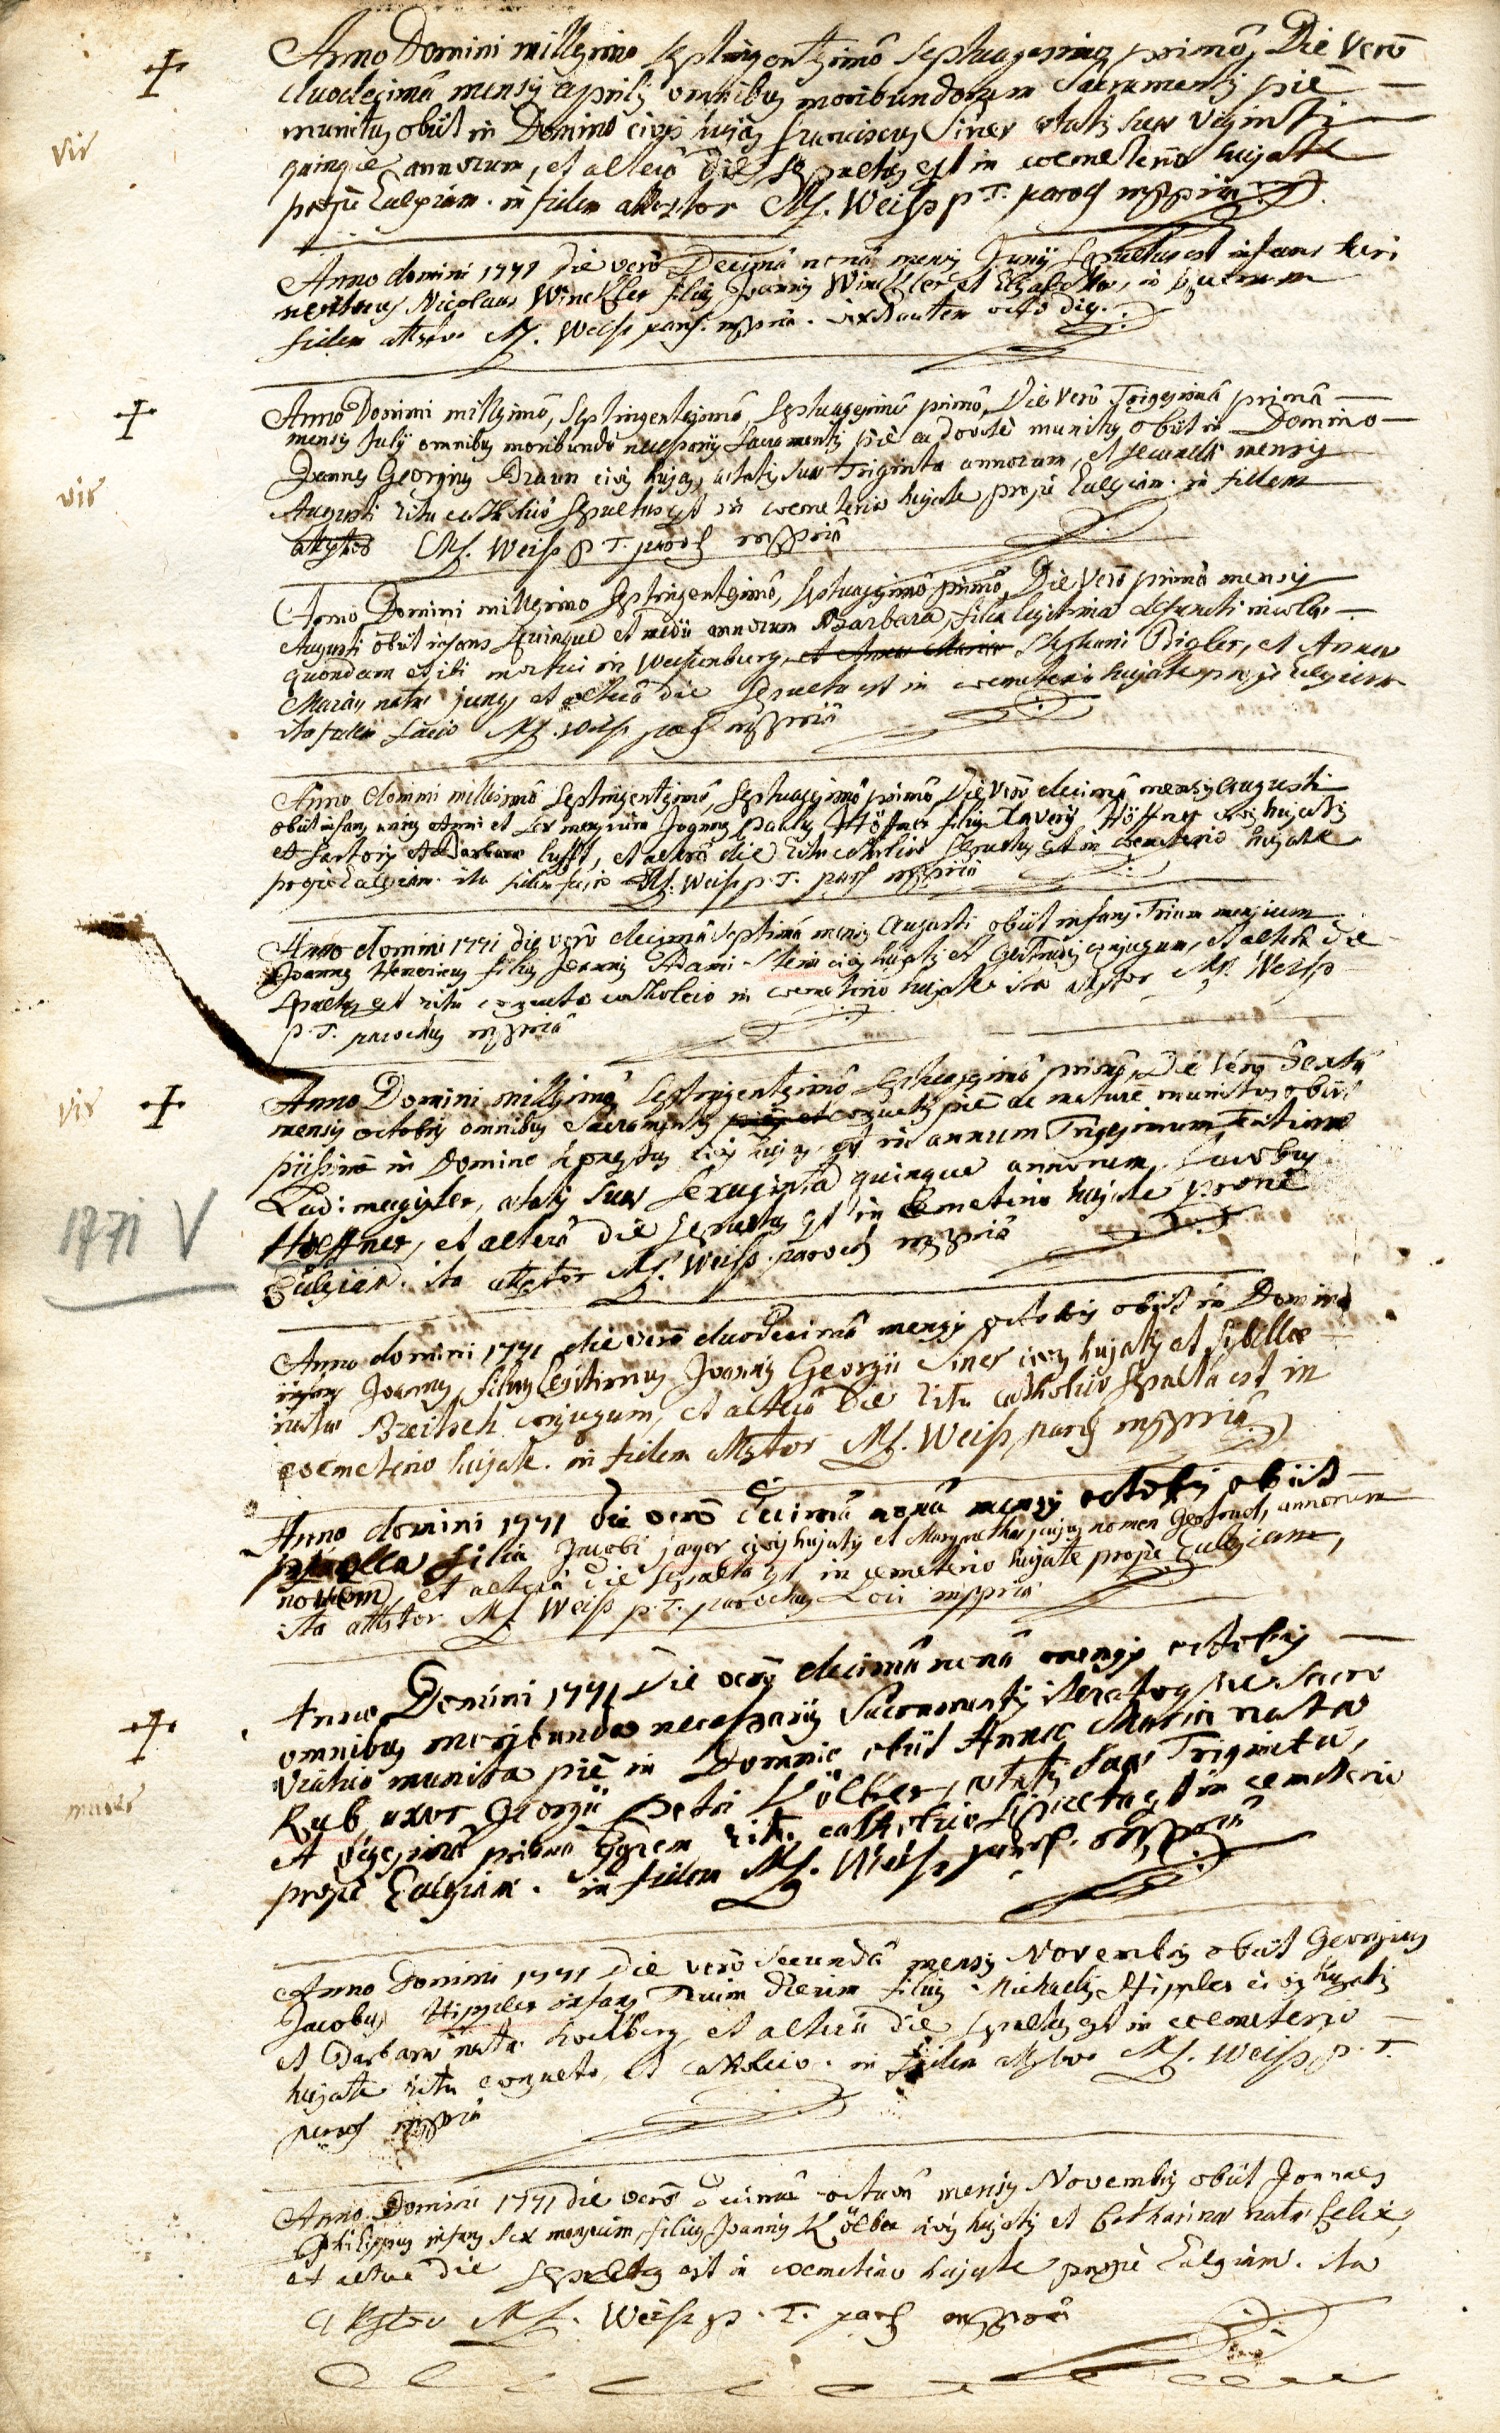 Anno Domini millesimo septingentesimô septuagesimo primô, Die verô
duodecimâ mensis Aprilis omnibus moribundorum Sacramentis piè
vir
munitus obiit in Domino civis hujas Franciscus Siner ætatis suæ viginti
quinque annorum, et alterâ die sepultus est in coemeterio hujate
propè Ecclesiam. in fidem attestor M. Weiss p. T. paroch mppriâ
Anno domini 1771 die verô Decimâ nonâ mensis Junij Sepultus est infans
Nicolaus Winckler filius Joannis Winckler et Elisabethæ, in quorum
fidem attestor M. Weiss paroch mppriâ. vixit autem octo dies.
Anno Domini millesimô, Septingentesimô, Septuagesimô primô, Die verô Trigesimâ primâ
mensis July omnibus moribundo necessarijs Sacramentis piè ac devotè munitus obiit in Domino
vir
Joannes Georgius Braun civis hujas, ætatis suæ Triginta annorum, et secundâ mensis
Augusti ritu catholico Sepultus est in coemeterio hujate propè Ecclesiam. in fidem
attestor M. Weiss p. T. paroch mppriâ
Anno Domini millesimo Septingentesimô, Septuagesimô primô, Die verô primâ mensis
Augusti obiit infans quinque et medii annorum Barbara, filia legitima defuncti incolæ
quondam et ibi mortui in Weissenburg, et Annæ Mariæ Stephani Bigler, et Annæ
Mariæ natæ jung, et alterâ die Sepulta est in coemeterio hujate propè Ecclesiam
ita fidem facio M. Weiss paroch mppriâ
Anno domini millesimô Septingentesimô, Septuagesimô primô, Die verô decimâ mensis Augusti
obiit infans unius Anni et sex mensium Joannes Paulus Höffner filius Xaverij Höffner civis hujatis
et Sartoris et Barbaræ lufft, et alterâ die ritu catholico Sepultus est in coemeterio hujate
propè Ecclesiam. ita fidem facio M. Weiss p. T. paroch mppriâ
Anno domini 1771 die verô decimâ septimâ mensis Augusti obiit infans Trium mensium
Joannes Henericus filius Joannis Adami Stein civis hujatis et Gertrudis conjugum, et alterâ die
Sepultus est ritu consueto catholico in coemeterio hujate ita attestor M. Weiss
p. T. parochus mppriâ
Anno Domini millesimô Septingentesimô Septuagesimô primô, Die verô Sextâ
vir
mensis octobris omnibus Sacramentis pijs et consuetis piè ac maturè munitus obiit
piissimè in Domino honestus civis hujas, et in annum Trigesimum
Ludi: magister, ætatis suæ Sexaginta quinque annorum, Jacobus
1771 V
Hoeffner, et alterâ die Sepultus est in Cemeterio hujate propè
Ecclesiam. ita attestor M. Weiss paroch mppriâ
Anno domini 1771 die verô duodecimâ mensis octobris obiit in Domino
infans Joannes, filius legitimus Joannis Georgii Siner civis hujatis et Sibillæ
natæ Breitsch conjugum, et alterâ Die ritu catholico Sepulta est in
coemeterio hujate. in fidem attestor M. Weiss paroch mppriâ
Anno domini 1771 die verô Decimâ nonâ mensis octobris obiit
puella filia Jacobi jager civis hujatis et Margarethæ, cujus nomen Gertrud, annorum
novem, et alterâ Die Sepulta est in cemeterio hujate propè Ecclesiam,
ita attestor M. Weiss p. T. parochus Loci mppriâ
Anno Domini 1771 Die verô decimâ nonâ mensis octobris
omnibus moribundo necessarijs Sacramentis sacro
viatico munita piè in Domino obiit Anna Maria nata
mulier
Kub, uxor Georgii Petri Völcker, ætatis suæ Triginta,
et vigesimâ primâ ritu catholico Sepulta est in cemeterio
propè Ecclesiam. in fidem M. Weiss paroch. mppriâ
Anno Domini 1771 Die verô Secundâ mensis Novembris obiit Georgius
Jacobus Hippler infans Trium dierum filius Michaelis Hippler civis hujatis
et Barbaræ natæ Hochberg, et alterâ Die Sepultus est in coemeterio
hujate ritu consueto, et catholico. in fidem attestor M. Weiss p. T.
paroch mppriâ
Anno Domini 1771 die verô Decimâ octavâ mensis Novembris obiit Joannes
Philippus infans Sex mensium, filius Joannis Kölber civis hujatis et Catharinæ natæ Felix,
et alterâ Die Sepultus est in coemeterio hujate propè Ecclesiam. ita
Attestor M. Weiss p. T. paroch mppriâ